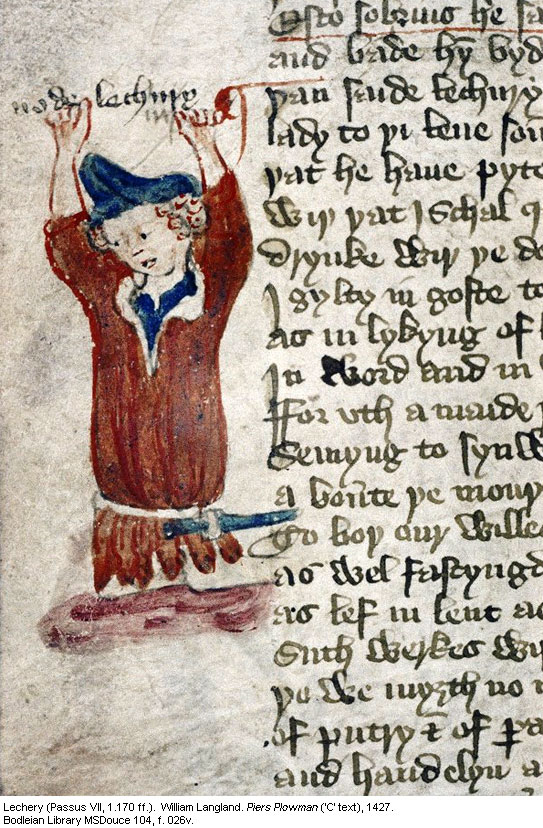 Esto sobrius he sa
de lechury
and bade hy byd
þan saide lechury
lady to þi leue son
þat he haue pyte
wiþ þat I schal
drynke wiþ þe do
I gylty in goste to
as in lykyng of
In word and in
For vch a maide
Semyng to
a boute þe mouþ
to boþ our wille
as wel fastyngd
as lef in lent
Such werkes
þo we myȝth no
of putry & of
and handelyn a
Lechery (Passus VII, 1.170 ff.).  William Langland. Piers Plowman ('C' text), 1427.
Bodleian Library MSDouce 104, f. 026v.